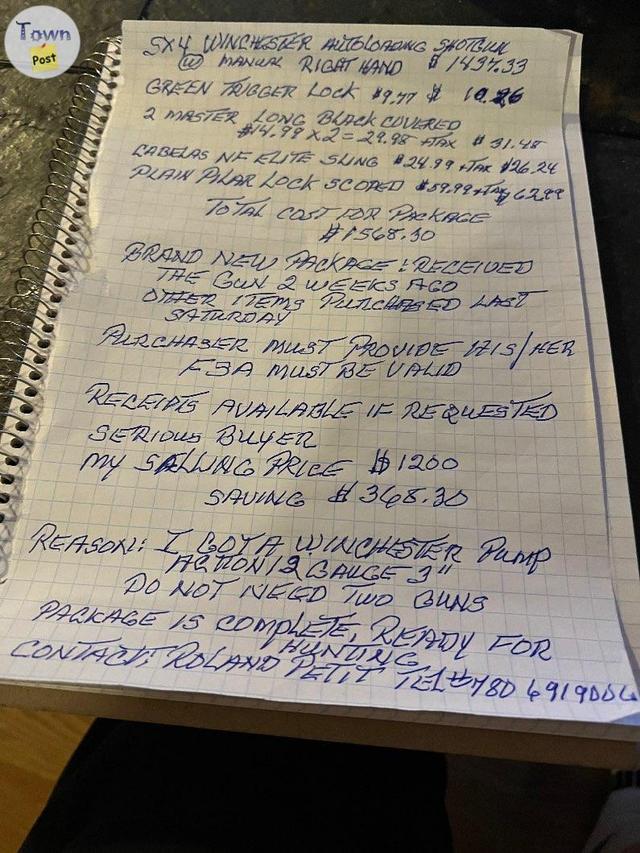 Town
Post
SX4 WINCHESTER AUTOLOADING SHOTGUN
W MANUAL RIGHT HAND $1437.33
GREEN TRIGGER LOCK $9.77 $ 10.26
2 MASTER LONG BLACK COVERED
$14.99 X 2 = 29.98 + TAX $ 31.48
CABELAS NF ELITE SLING $24.99 + TAX $26.24
PLAIN PILAR LOCK SCOPED $59.99 + TAX $62.99
TOTAL COST FOR PACKAGE
$1568.30
BRAND NEW PACKAGE! RECEIVED
THE GUN 2 WEEKS AGO
OTHER ITEMS PURCHASED LAST
SATURDAY
PURCHASER MUST PROVIDE HIS/HER
F3A MUST BE VALID
RECEIPTS AVAILABLE IF REQUESTED
SERIOUS BUYER
MY SALLING PRICE $1200
SAVING $368.30
REASON: I GOT A WINCHESTER PUMP
ACTION 12 GAUGE 3"
DO NOT NEED TWO GUNS
PACKAGE IS COMPLETE, READY FOR
HUNTING
CONTACT: ROLAND PETIT TEL# 780 6919006